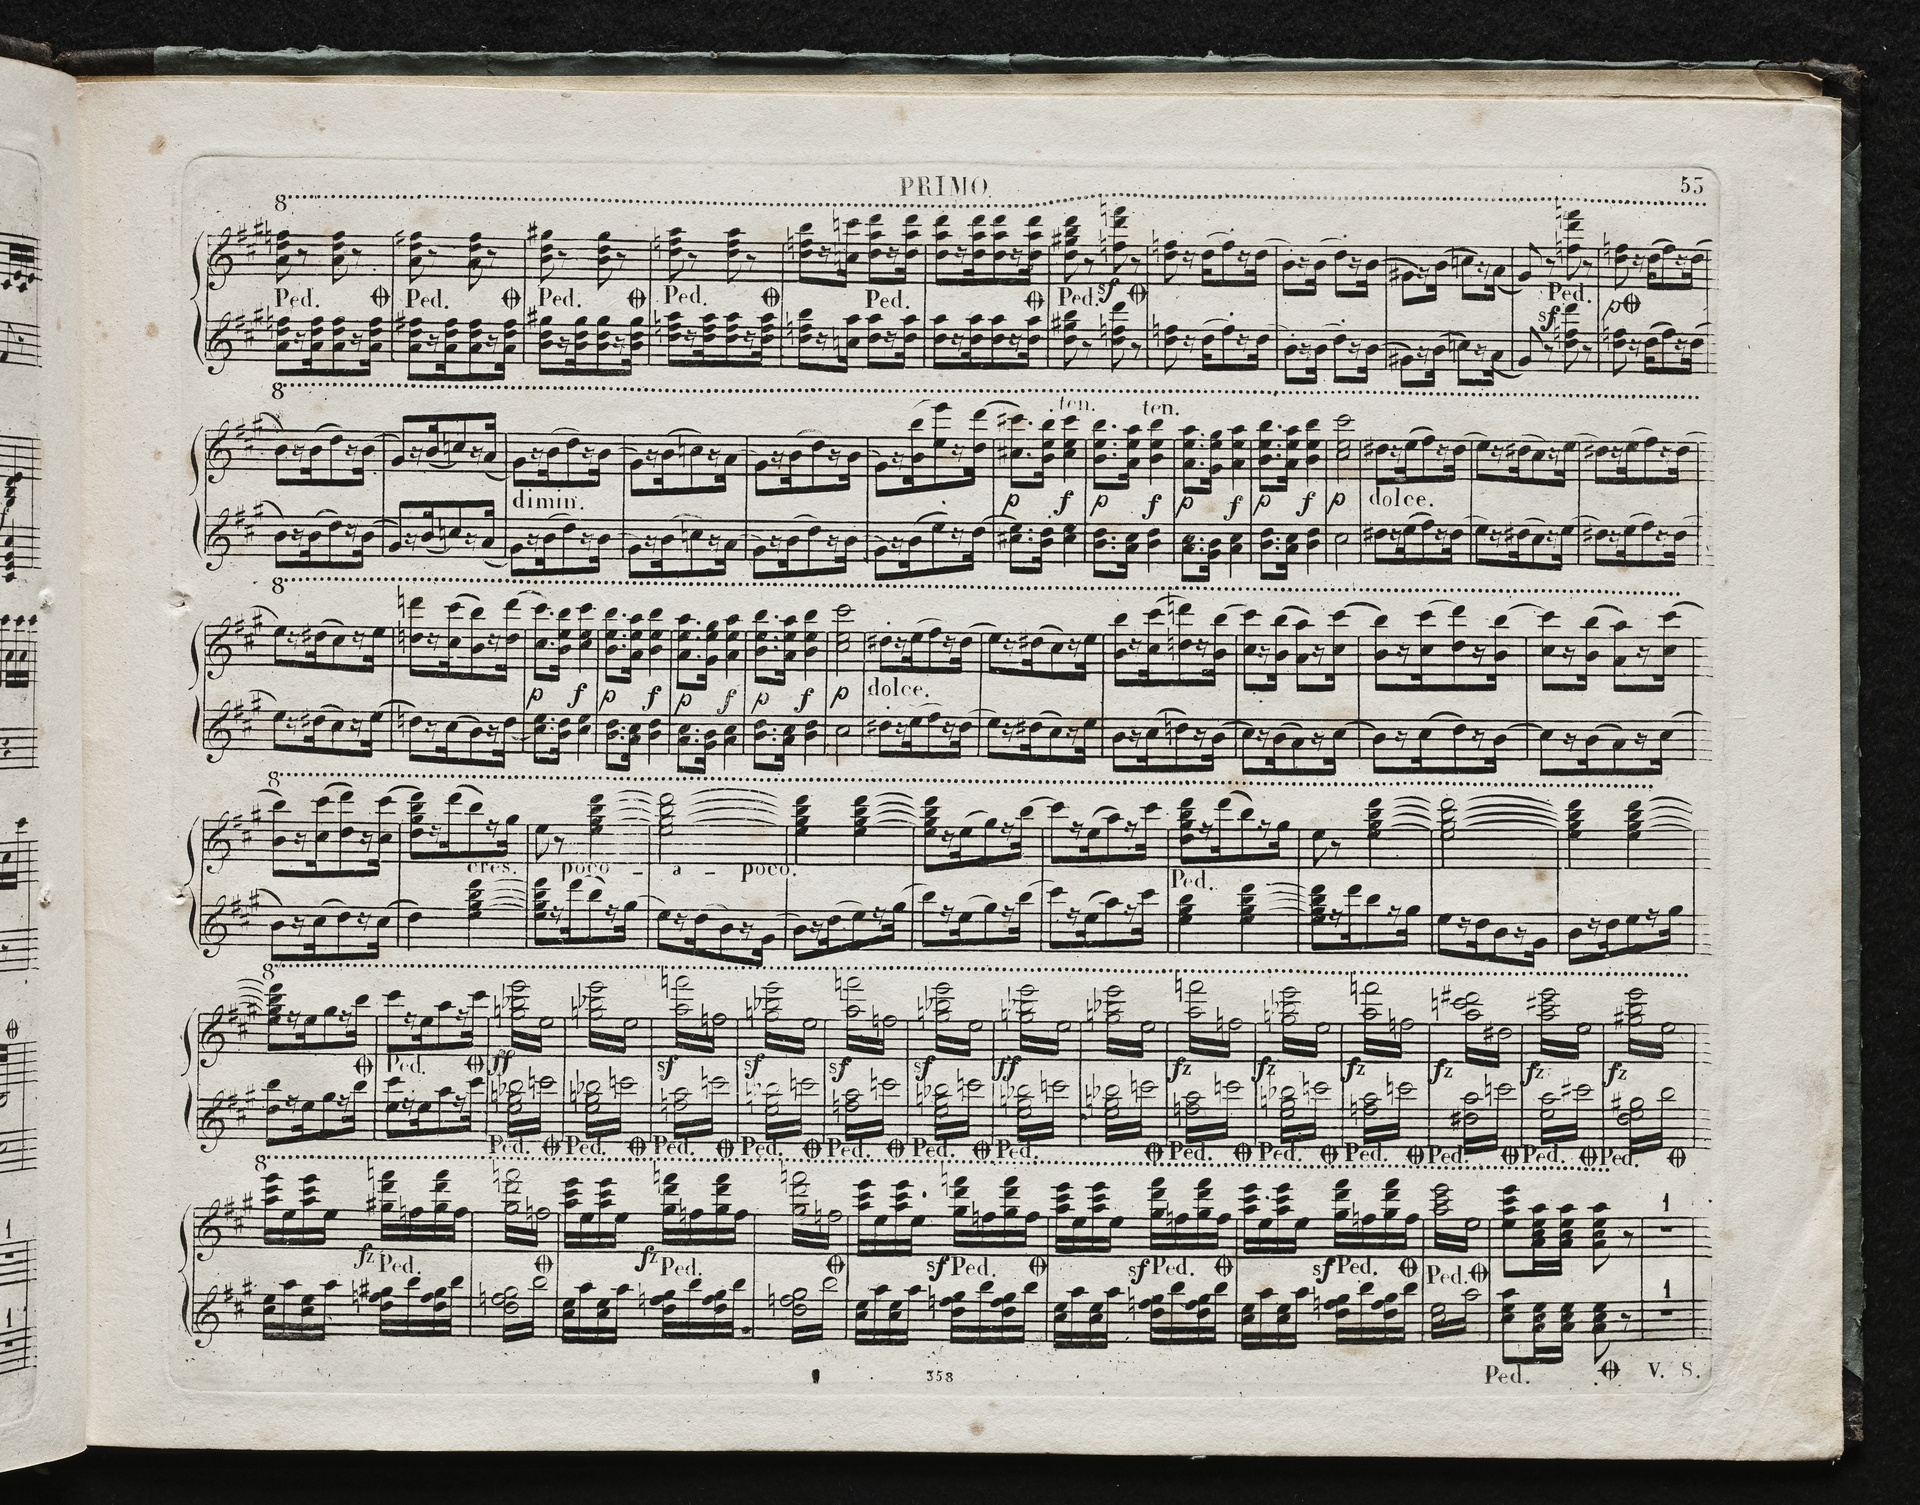 PRIMO. 53
8
Ped. Ped. Ped. Ped. Ped. Ped. sf Ped. p
sf
8
ten. ten.
dimin. p f p f p f p f p dolce.
8
p f p f p f p f p dolce.
8
cres. poco - a - poco.
Ped.
8
Ped. ff sf sf sf sf ff fz fz fz fz fz fz
Ped. Ped. Ped. Ped. Ped. Ped. Ped. Ped. Ped. Ped. Ped. Ped. Ped.
8
1
fz Ped. fz Ped. sf Ped. sf Ped. sf Ped. Ped.
1
Ped. V. S.
358